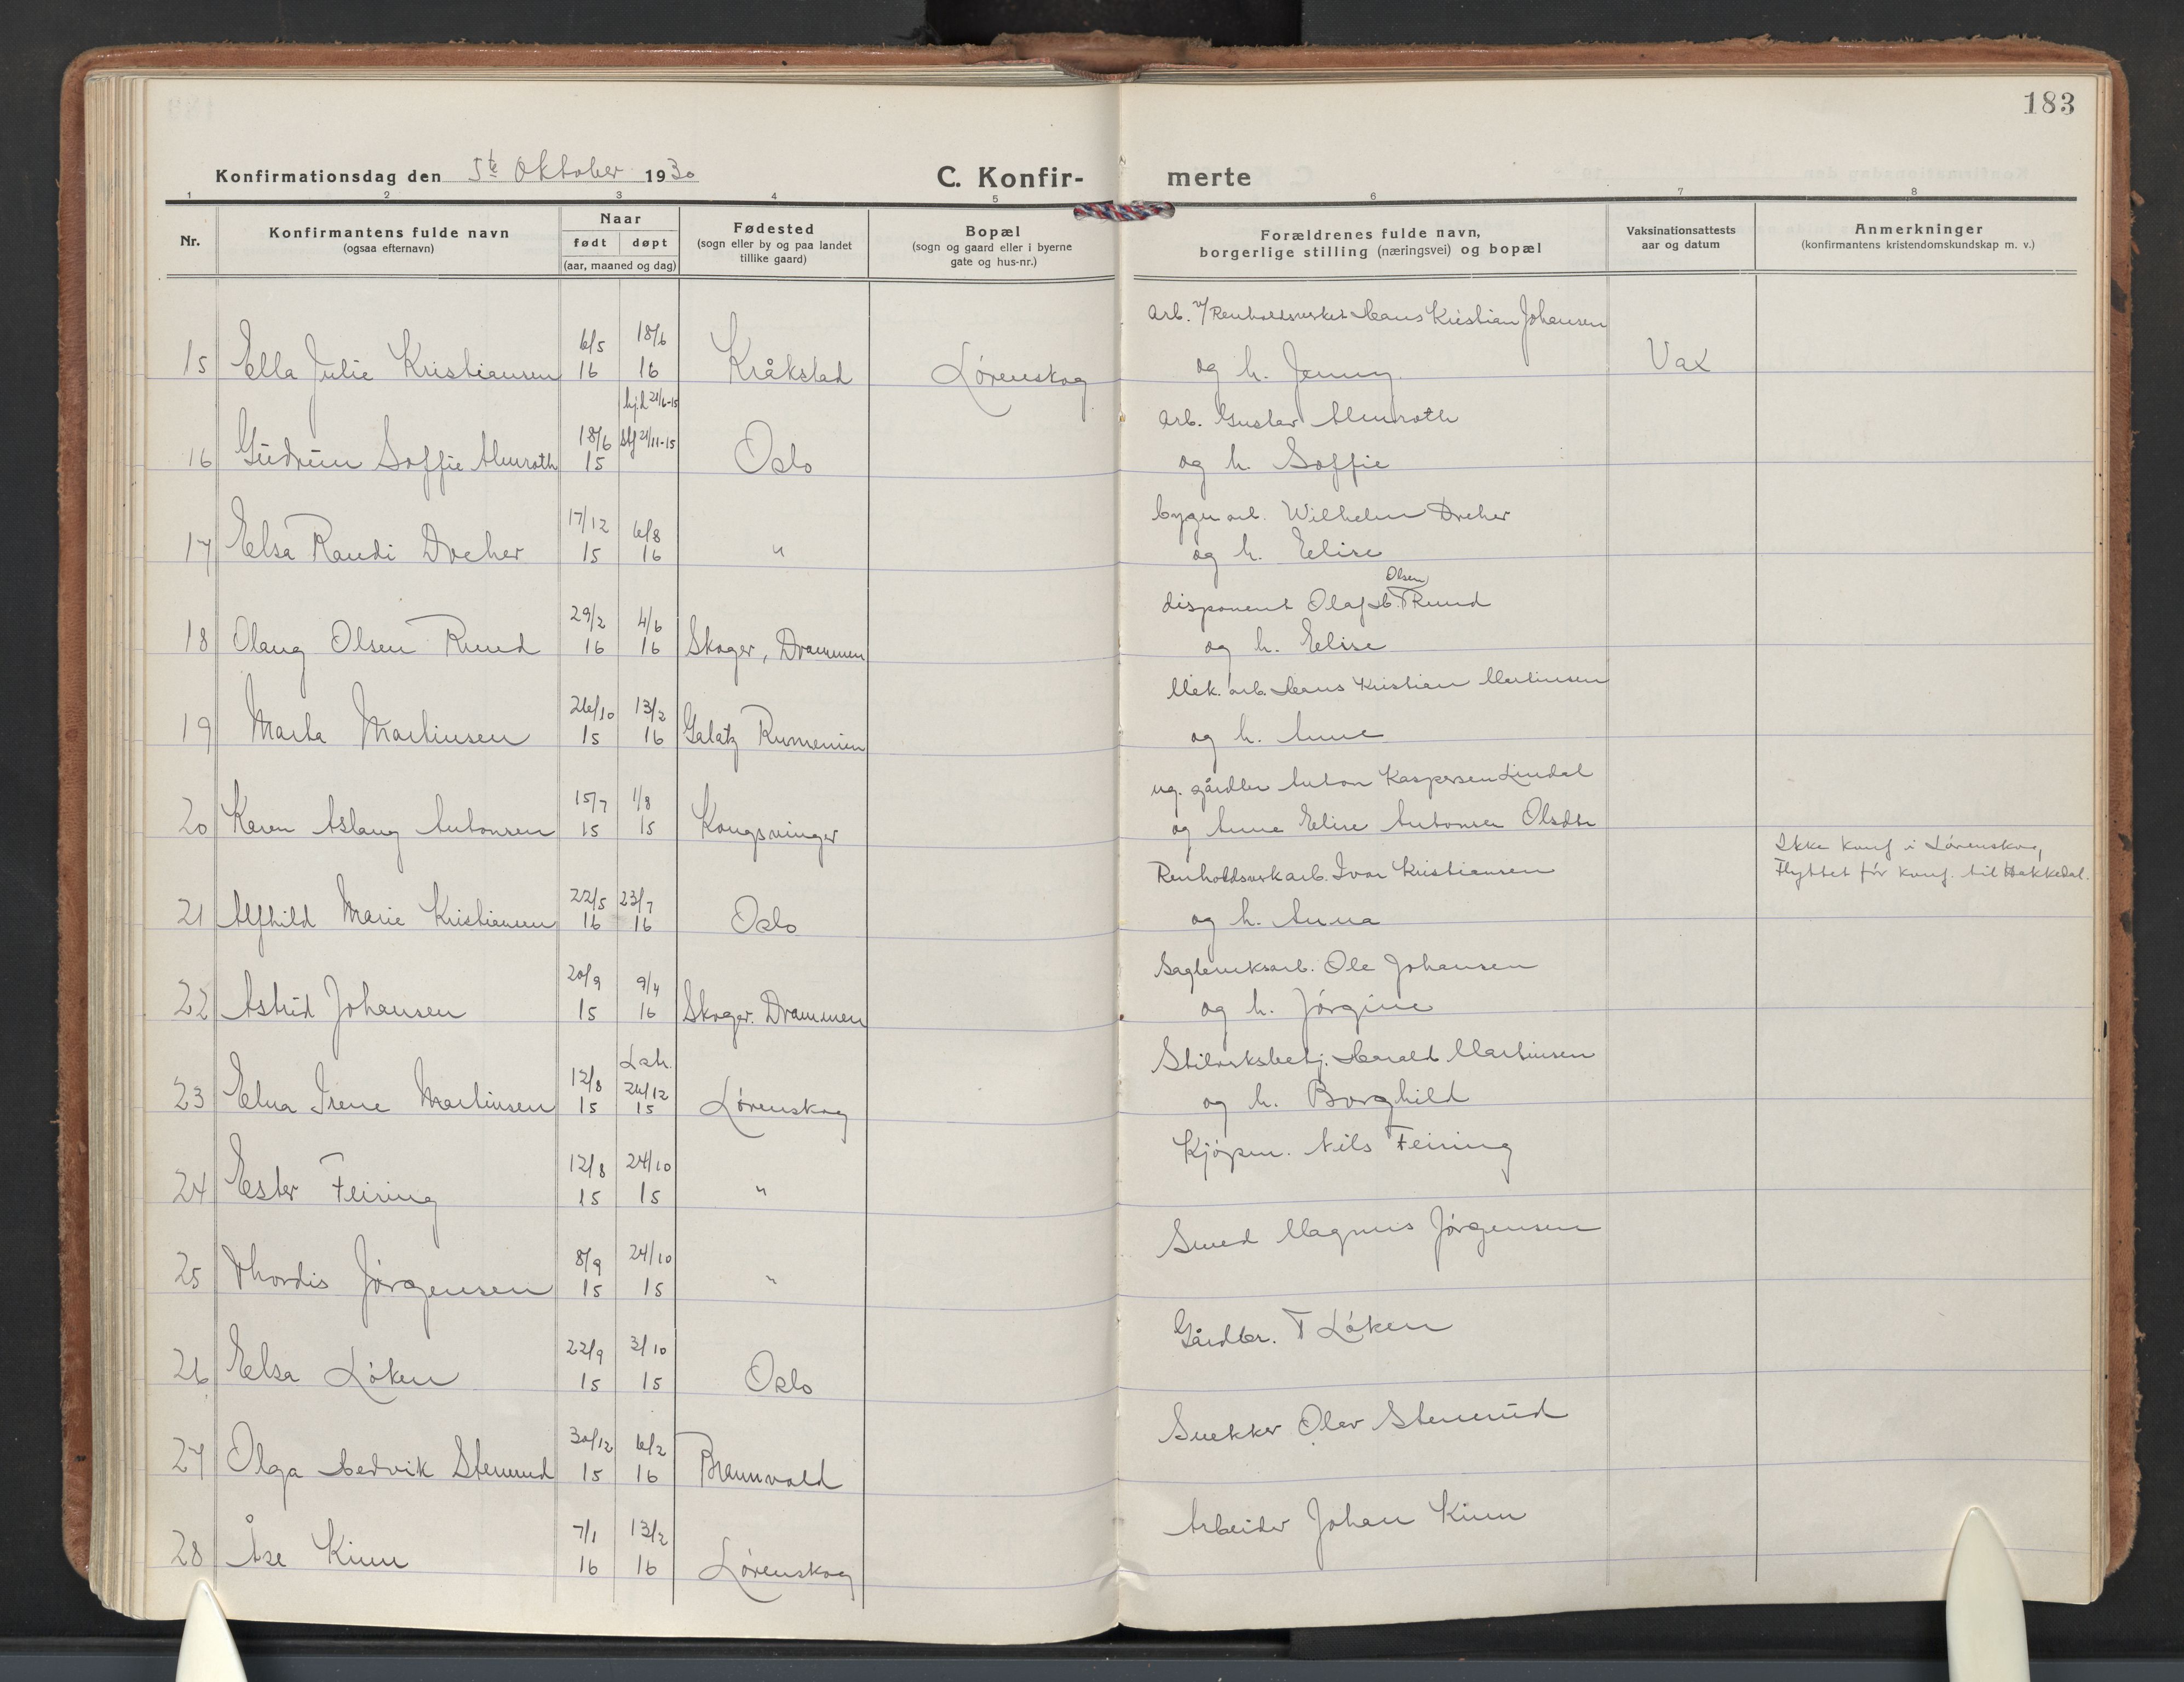 183
Konfirmationsdag den 5te Oktober 1930 C. Konfir- merte
1 2 3 4 5 6 7 8
Nr.
Konfirmantens fulde navn
(ogsaa efternavn)
Naar
født døpt
(aar, maaned og dag)
Fødested
(sogn eller by og paa landet
tillike gaard)
Bopæl
(sogn og gaard eller i byerne
gate og hus-nr.)
Forældrenes fulde navn,
borgerlige stilling (næringsvei) og bopæl
Vaksinationsattests
aar og datum
Anmerkninger
(konfirmantens kristendomskundskap m. v.)
6/5 18/6 Arb. v/ Renholdsverket Hans Kristian Johansen
15 Ella Julie Kristiansen 16 16 Kråkstad Lørenskog og h. Jenny Vax
hj.d 21/6-15
18/6 21/11-15 Arb. Gustav Almroth
16 Gudrun Soffie Almroth 15 Oslo og h. Soffie
17/12 6/8 bygn arb. Wilhelm Dreher
17 Elsa Randi Dreher 15 16 " og h. Elise
Olsen
29/2 4/6 disponent Olaf H. Ruud
18 Olaug Olsen Ruud 16 16 Skoger, Drammen og h. Elise
26/10 13/2 Mek. arb. Hans Kristian Martinsen
19 Marta Martinsen 15 16 Galatz Rumenien og h. Anne
15/7 1/8 ug. gårdbr Anton Kaspersen Lindal
20 Karen Aslaug Antonsen 15 15 Kongsvinger og Anne Elise Antonsen Olsdtr
Ikke konf i Lørenskog,
Flyttet før konf. til Hakkedal.
22/5 23/7 Renholdsverkarb. Ivar Kristiansen
21 Alfhild Marie Kristiansen 16 16 Oslo og h. Anna
20/9 9/4 Sagbruksarb. Ole Johansen
22 Astrid Johansen 15 16 Skoger. Drammen og h. Jørgine
12/8 26/12 Harald Martinsen
23 Elna Irene Martinsen 15 15 Lørenskog og h. Borghild
12/8 24/10 Kjøpm. Nils Feiring
24 Ester Feiring 15 15 "
8/9 24/10 Smed Magnus Jørgensen
25 Thordis Jørgensen 15 15 "
22/9 3/10 Gårdbr. T Løken
26 Elsa Løken 15 15 Oslo
30/12 6/2 Snekker Olav Stenerud
27 Olga Hedvik Stenerud 15 16 Brannvold
7/1 13/2 Arbeider Johan Kinn
28 Åse Kinn 16 16 Lørenskog